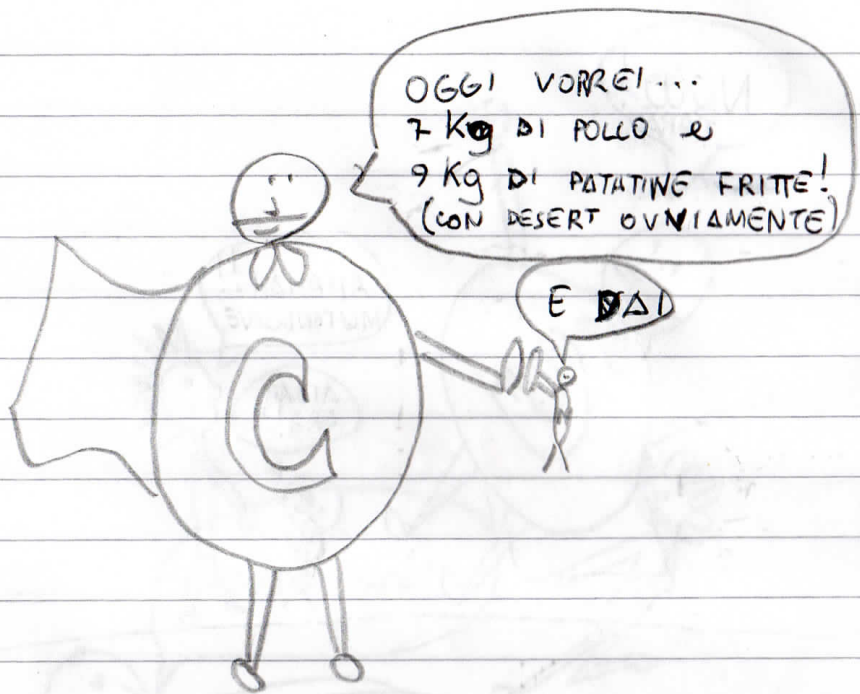 OGGI VORREI...
7 Kg DI POLLO e
9 Kg DI PATATINE FRITTE!
(CON DESERT OVVIAMENTE)
E DAI
C